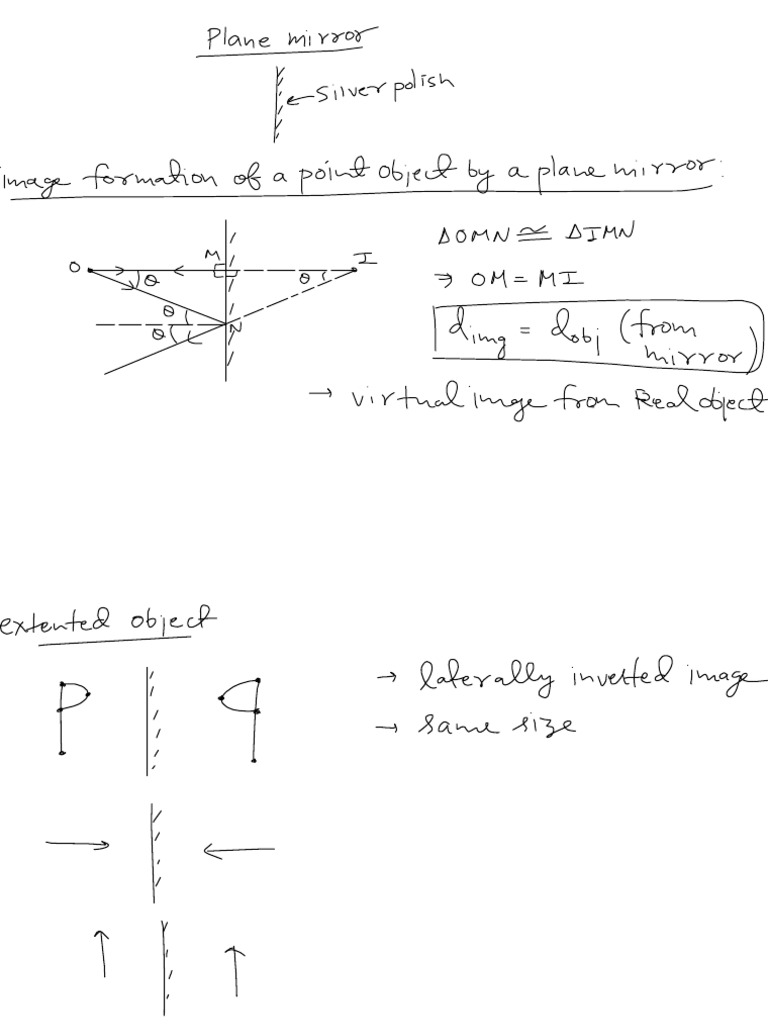 Plane mirror
←Silver polish
image formation of a point object by a plane mirror:
O θ M θ I
θ
θ N
ΔOMN ≅ ΔIMN
→ OM = MI
dimg = dobj (from
mirror)
→ virtual image from Real object
extented object
P
→ laterally inverted image
→ same size